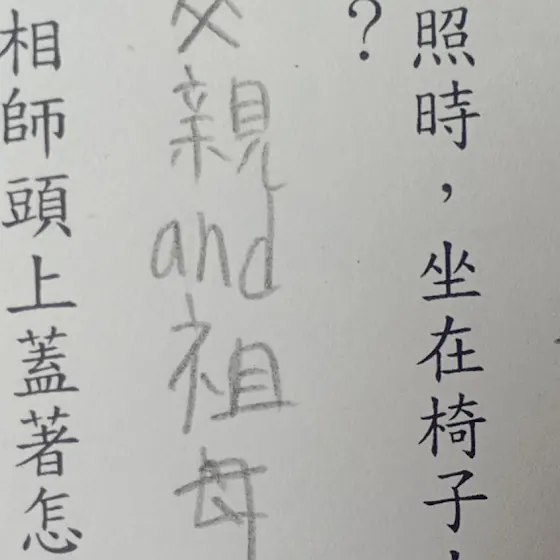 照時，坐在椅子
？
父親and祖母
相師頭上蓋著怎